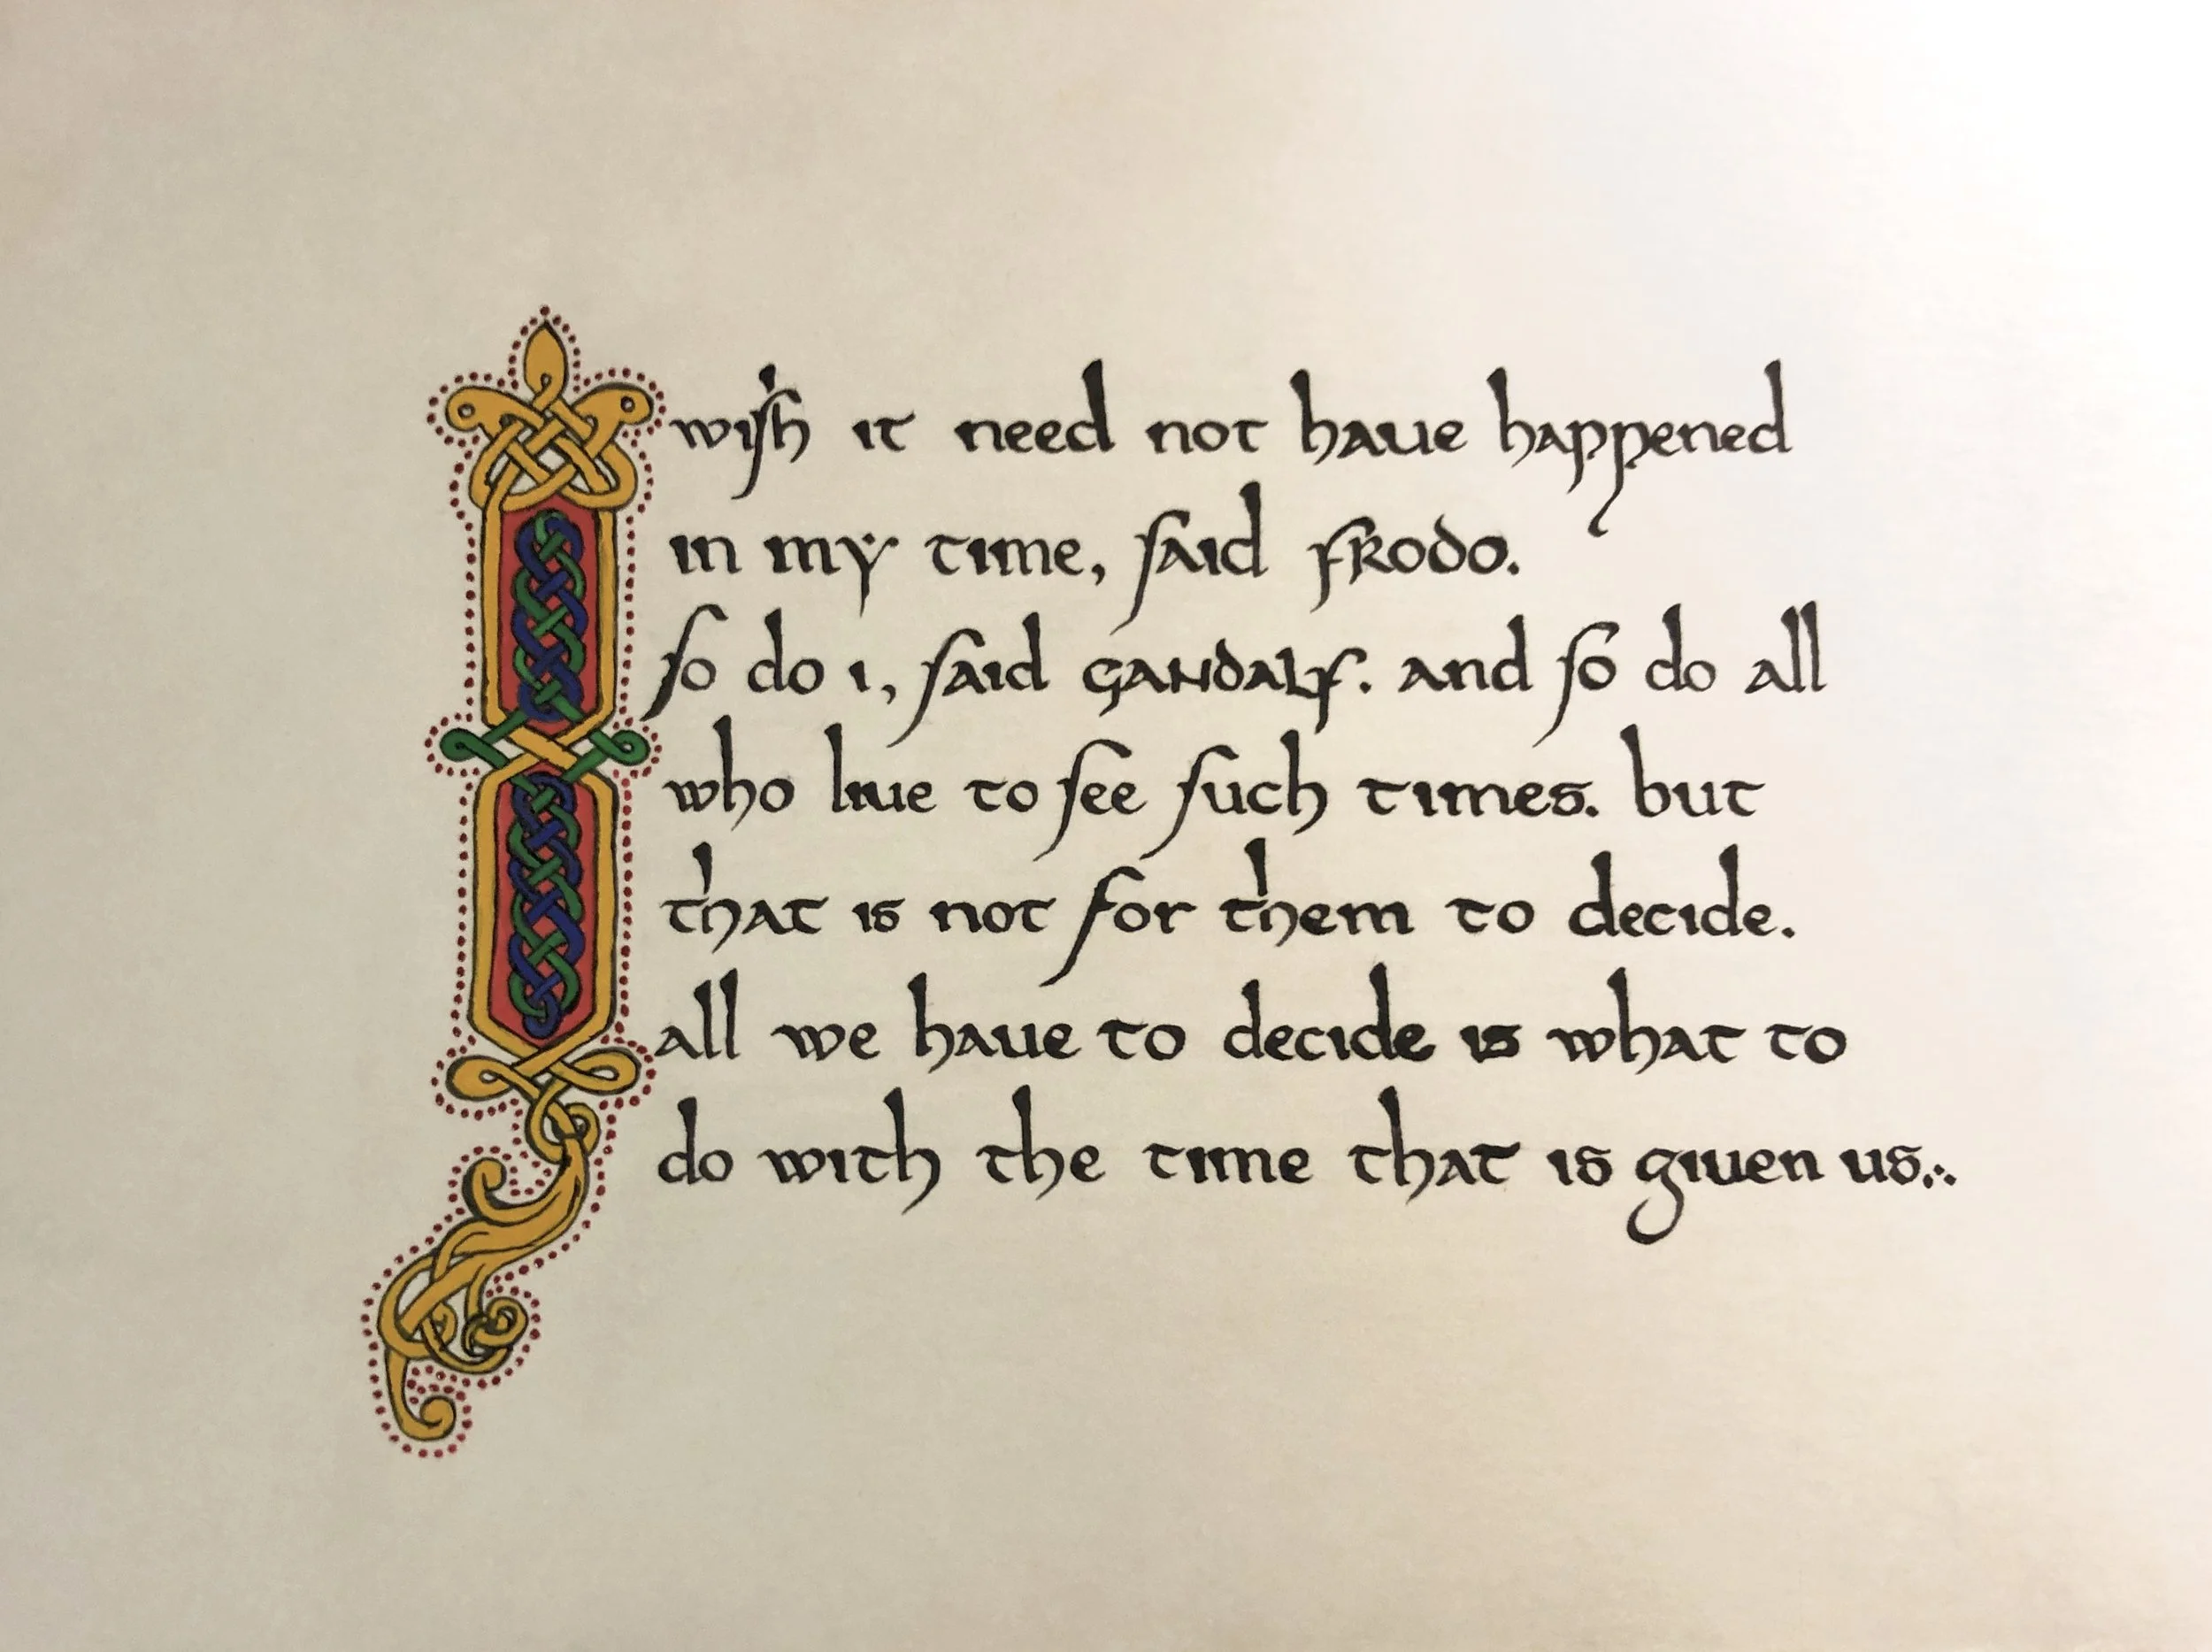 I wish it need not have happened
in my time, said Frodo.
so do i, said Gandalf. and so do all
who live to see such times. but
that is not for them to decide.
all we have to decide is what to
do with the time that is given us.:.